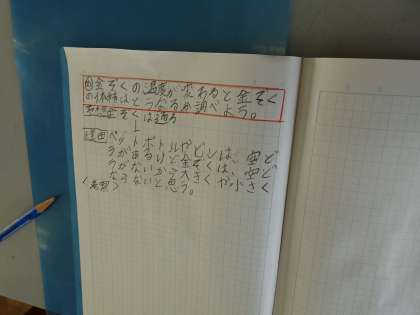 ㋱金ぞくの温度が変わると金ぞく
の体積はどうなるか調べよう。
予想 金ぞくは
理由 ペットボトルやビンは、空ど
うがあるけど金ぞくは、空ど
うがないから大きくや小さく
ならないと思う。